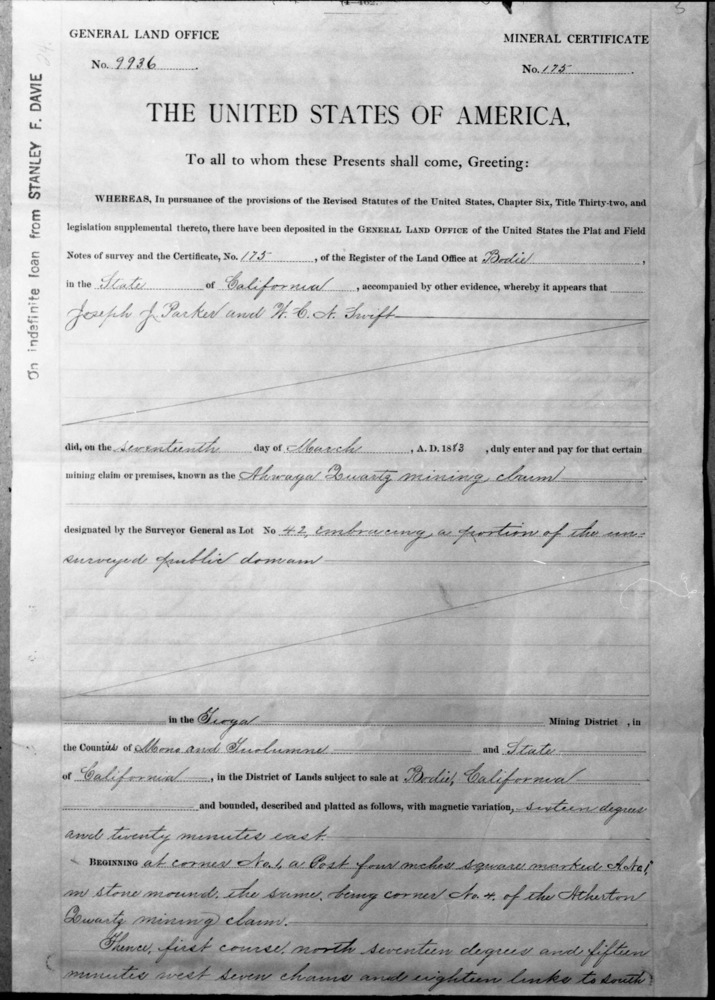 GENERAL LAND OFFICE
No. 9936
MINERAL CERTIFICATE
No. 175
THE UNITED STATES OF AMERICA,
To all to whom these Presents shall come, Greeting:
WHEREAS, In pursuance of the provisions of the Revised Statutes of the United States, Chapter Six, Title Thirty-two, and
legislation supplemental thereto, there have been deposited in the GENERAL LAND OFFICE of the United States the Plat and Field
Notes of survey and the Certificate, No. 175, of the Register of the Land Office at Bodie,
in the State of California, accompanied by other evidence, whereby it appears that
Joseph J. Parker and H. C. N. Swift
did, on the seventeenth day of March, A. D. 1883, duly enter and pay for that certain
mining claim or premises, known as the Ahwaya Quartz mining claim
designated by the Surveyor General as Lot No 42, embracing a portion of the un-
surveyed public domain
in the Tioga Mining District, in
the Counties of Mono and Tuolumne and State
of California, in the District of Lands subject to sale at Bodie, California
and bounded, described and platted as follows, with magnetic variation, sixteen degrees
and twenty minutes east.
BEGINNING at corner No. 1, a Post four inches square marked A. No. 1,
in stone mound, the same, being corner No. 4, of the Atherton
Quartz mining claim.
Thence, first course, north seventeen degrees and fifteen
minutes west seven chains and eighteen links to south
On indefinite loan from STANLEY F. DAVIE